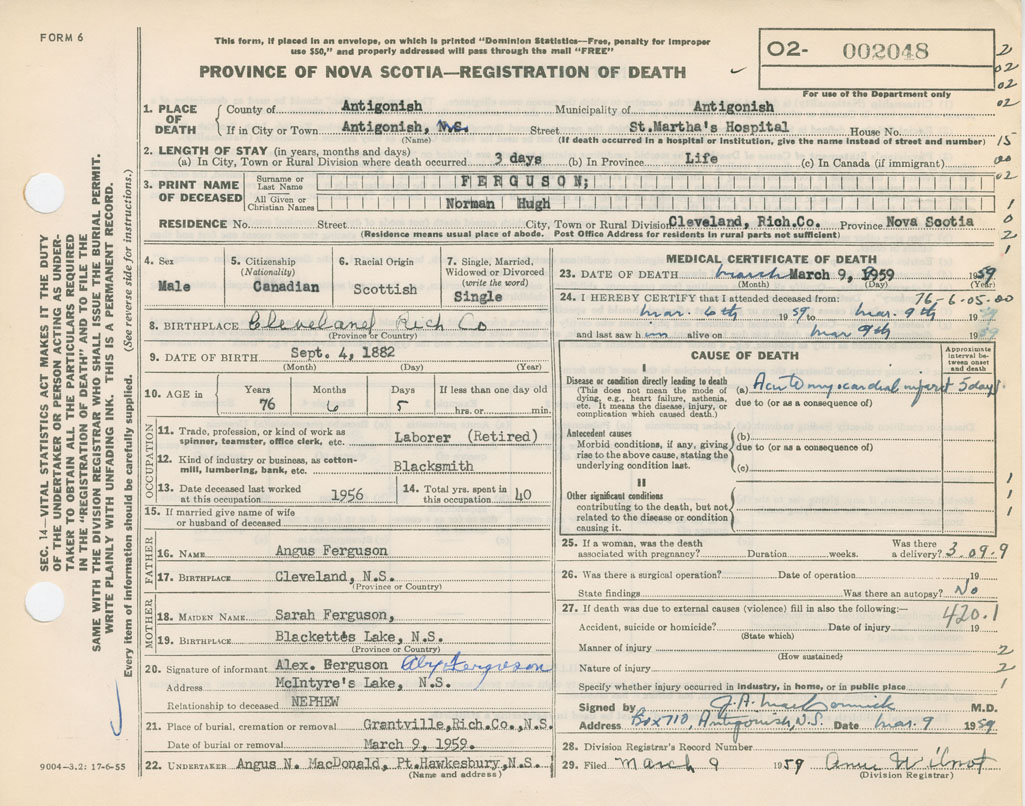 FORM 6
This form, if placed in an envelope, on which is printed "Dominion Statistics—Free, penalty for improper
use $50," and properly addressed will pass through the mail "FREE"
PROVINCE OF NOVA SCOTIA—REGISTRATION OF DEATH
02- 002048
For use of the Department only
2
02
02
02
15
00
02
1
0
2
1
1. PLACE OF DEATH
County of Antigonish Municipality of Antigonish
If in City or Town Antigonish, N.S. Street St.Martha's Hospital House No.
(Name) (If death occurred in a hospital or institution, give the name instead of street and number)
2. LENGTH OF STAY (in years, months and days)
(a) In City, Town or Rural Division where death occurred 3 days (b) In Province Life (c) In Canada (if immigrant)
3. PRINT NAME OF DECEASED
Surname or Last Name FERGUSON;
All Given or Christian Names Norman Hugh
RESIDENCE No. Street City, Town or Rural Division Cleveland, Rich.Co. Province Nova Scotia
(Residence means usual place of abode. Post Office Address for residents in rural parts not sufficient)
4. Sex
Male
5. Citizenship
(Nationality)
Canadian
6. Racial Origin
Scottish
7. Single, Married,
Widowed or Divorced
(write the word)
Single
8. BIRTHPLACE Cleveland Rich Co
(Province or Country)
9. DATE OF BIRTH Sept. 4, 1882
(Month) (Day) (Year)
10. AGE in
Years Months Days If less than one day old
76 6 5 hrs. or min.
OCCUPATION
11. Trade, profession, or kind of work as
spinner, teamster, office clerk, etc. Laborer (Retired)
12. Kind of industry or business, as cotton-
mill, lumbering, bank, etc. Blacksmith
13. Date deceased last worked
at this occupation 1956
14. Total yrs. spent in
this occupation 40
15. If married give name of wife
or husband of deceased
FATHER
16. NAME Angus Ferguson
17. BIRTHPLACE Cleveland, N.S.
(Province or Country)
MOTHER
18. MAIDEN NAME Sarah Ferguson,
19. BIRTHPLACE Blackettes Lake, N.S.
(Province or Country)
20. Signature of informant Alex. Ferguson Alex Ferguson
Address McIntyre's Lake, N.S.
Relationship to deceased NEPHEW
21. Place of burial, cremation or removal Grantville,Rich.Co.,N.S.
Date of burial or removal March 9, 1959.
22. UNDERTAKER Angus N. MacDonald, Pt.Hawkesbury,N.S.
(Name and address)
MEDICAL CERTIFICATE OF DEATH
23. DATE OF DEATH March March 9, 1959 1959
(Month) (Day) (Year)
24. I HEREBY CERTIFY that I attended deceased from: 76-6-05-00
Mar. 6th 1959 to Mar. 9th 1959
and last saw him alive on Mar 9th 1959
CAUSE OF DEATH
Approximate
interval be-
tween onset
and death
I
Disease or condition directly leading to death
(This does not mean the mode of
dying, e.g., heart failure, asthenia,
etc. It means the disease, injury, or
complication which caused death.)
(a) Acute myocardial infarct 5 days
due to (or as a consequence of)
Antecedent causes
Morbid conditions, if any, giving
rise to the above cause, stating the
underlying condition last.
(b)
due to (or as a consequence of)
(c)
II
Other significant conditions
contributing to the death, but not
related to the disease or condition
causing it.
1
1
1
25. If a woman, was the death
associated with pregnancy? Duration weeks. Was there
a delivery? 3-09-9
26. Was there a surgical operation? Date of operation 19
State findings Was there an autopsy? No
27. If death was due to external causes (violence) fill in also the following:— 420.1
Accident, suicide or homicide? Date of injury 19
(State which)
Manner of injury 2
(How sustained)
Nature of injury 2
Specify whether injury occurred in industry, in home, or in public place 1
Signed by J.A. MacCormick M.D.
Address Box 710, Antigonish, N.S. Date Mar. 9 1959
28. Division Registrar's Record Number
29. Filed March 9 1959 Anne Wilmot
(Division Registrar)
SEC. 14—VITAL STATISTICS ACT MAKES IT THE DUTY
OF THE UNDERTAKER OR PERSON ACTING AS UNDER-
TAKER TO OBTAIN ALL THE PARTICULARS REQUIRED
IN THE "REGISTRATION OF DEATH" AND TO FILE THE
SAME WITH THE DIVISION REGISTRAR WHO SHALL ISSUE THE BURIAL PERMIT.
WRITE PLAINLY WITH UNFADING INK. THIS IS A PERMANENT RECORD.
Every item of information should be carefully supplied. (See reverse side for instructions.)
9004—3.2: 17-6-55